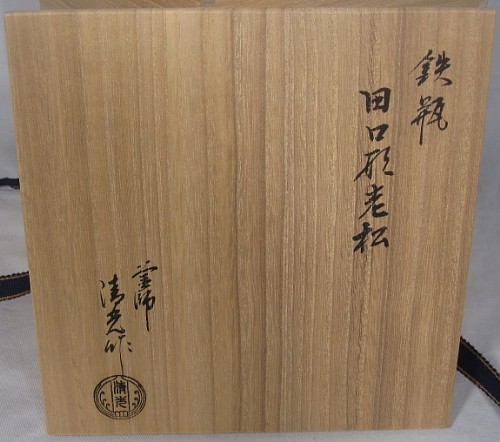 鉄瓶
田口形老松
釜師
清光作
清光